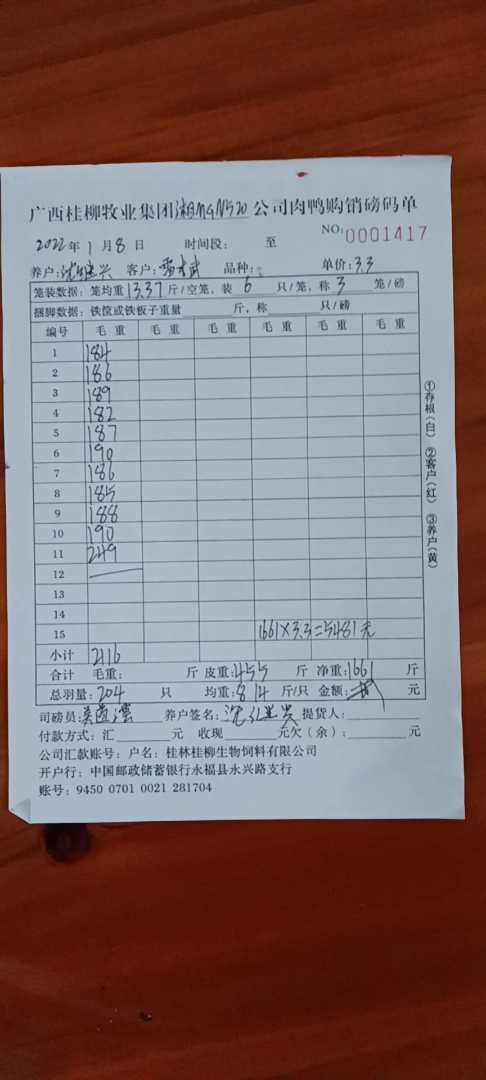 广西桂柳牧业集团 公司肉鸭购销磅码单
NO:0001417
2022年1月8日 时间段: 至
养户: 兴 客户: 品种: 单价:3.3
笼装数据: 笼均重13.37斤/空笼, 装6只/笼, 称3笼/磅
捆脚数据: 铁筐或铁板子重量 斤, 称 只/磅
编号 毛重 毛重 毛重 毛重 毛重 毛重
1 184
2 186
3 189
4 182
5 187
6 190
7 186
8 185
9 188
10 190
11 249
12 —
13
14
15 1661×3.3=5481元
小计 2116
合计 毛重: 斤 皮重:455斤 净重:1661斤
总羽量:204只 均重:8.14斤/只 金额: 元
司磅员: 养户签名: 提货人:
付款方式: 汇 元 收现 元欠(余): 元
公司汇款账号: 户名: 桂林桂柳生物饲料有限公司
开户行: 中国邮政储蓄银行永福县永兴路支行
账号: 9450 0701 0021 281704
①存根(白) ②客户(红) ③养户(黄)